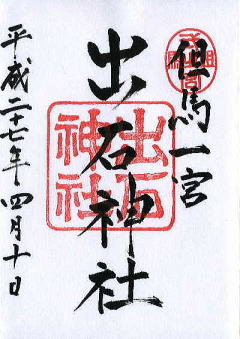 但馬一宮
出石神社
出石
神社
平成二十七年四月十日